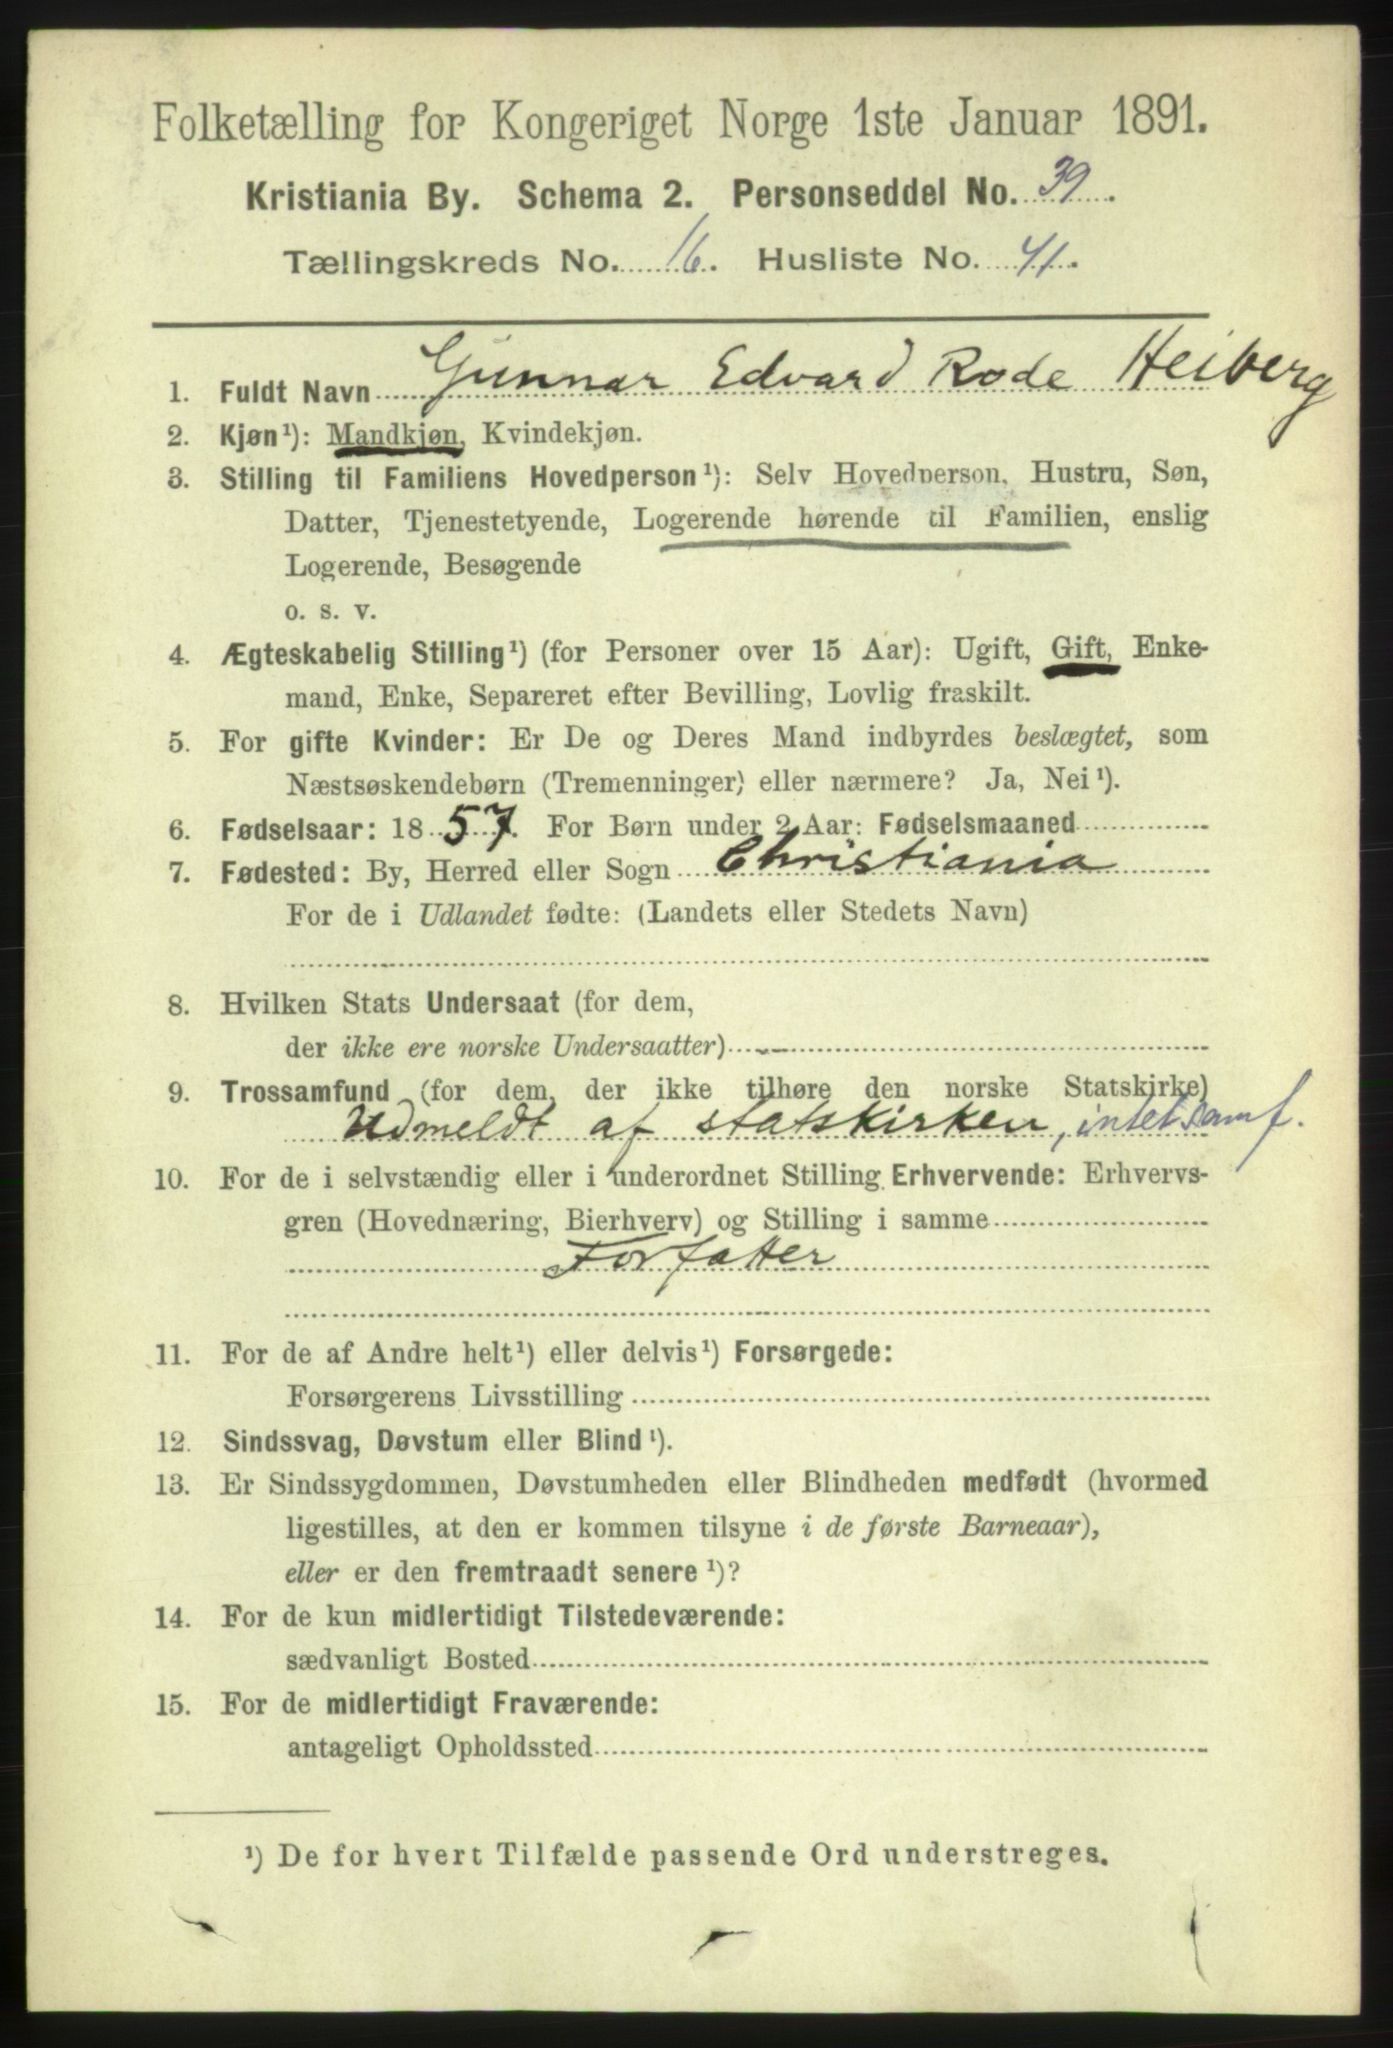 Folketælling for Kongeriget Norge 1ste Januar 1891.
Kristiania By. Schema 2. Personseddel No. 39.
Tællingskreds No. 16. Husliste No. 41.
1. Fuldt Navn Gunnar Edvard Rode Heiberg
2. Kjøn¹): Mandkjøn, Kvindekjøn.
3. Stilling til Familiens Hovedperson¹): Selv Hovedperson, Hustru, Søn,
Datter, Tjenestetyende, Logerende hørende til Familien, enslig
Logerende, Besøgende
o. s. v.
4. Ægteskabelig Stilling¹) (for Personer over 15 Aar): Ugift, Gift, Enke-
mand, Enke, Separeret efter Bevilling, Lovlig fraskilt.
5. For gifte Kvinder: Er De og Deres Mand indbyrdes beslægtet, som
Næstsøskendebørn (Tremenninger) eller nærmere? Ja, Nei¹).
6. Fødselsaar: 1857. For Børn under 2 Aar: Fødselsmaaned
7. Fødested: By, Herred eller Sogn Christiania
For de i Udlandet fødte: (Landets eller Stedets Navn)
8. Hvilken Stats Undersaat (for dem,
der ikke ere norske Undersaatter)
9. Trossamfund (for dem, der ikke tilhøre den norske Statskirke)
Udmeldt af statskirken, intet samf.
10. For de i selvstændig eller i underordnet Stilling Erhvervende: Erhvervs-
gren (Hovednæring, Bierhverv) og Stilling i samme
Forfatter
11. For de af Andre helt¹) eller delvis¹) Forsørgede:
Forsørgerens Livsstilling
12. Sindssvag, Døvstum eller Blind¹).
13. Er Sindssygdommen, Døvstumheden eller Blindheden medfødt (hvormed
ligestilles, at den er kommen tilsyne i de første Barneaar),
eller er den fremtraadt senere¹)?
14. For de kun midlertidigt Tilstedeværende:
sædvanligt Bosted
15. For de midlertidigt Fraværende:
antageligt Opholdssted
¹) De for hvert Tilfælde passende Ord understreges.